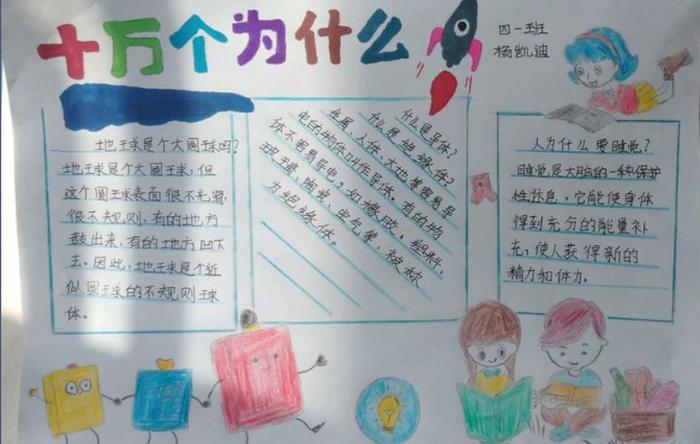 十万个为什么
四一班
杨凯迪
地球是个大圆球吗?
地球是个大圆球，但
这个圆球表面很不光滑，
很不规则，有的地方
鼓出来，有的地方凹下
去。因此，地球是个近
似圆球的不规则球
体。
什么是导体?
什么是绝缘体?
金属、人体、大地等容易导
电的物体叫作导体。有的物
体不容易导电，如橡胶、塑料、
玻璃、陶瓷、空气等，被称
为绝缘体。
人为什么要睡觉?
睡觉是大脑的一种保护
性休息，它能使身体
得到充分的能量补
充，使人获得新的
精力和体力。